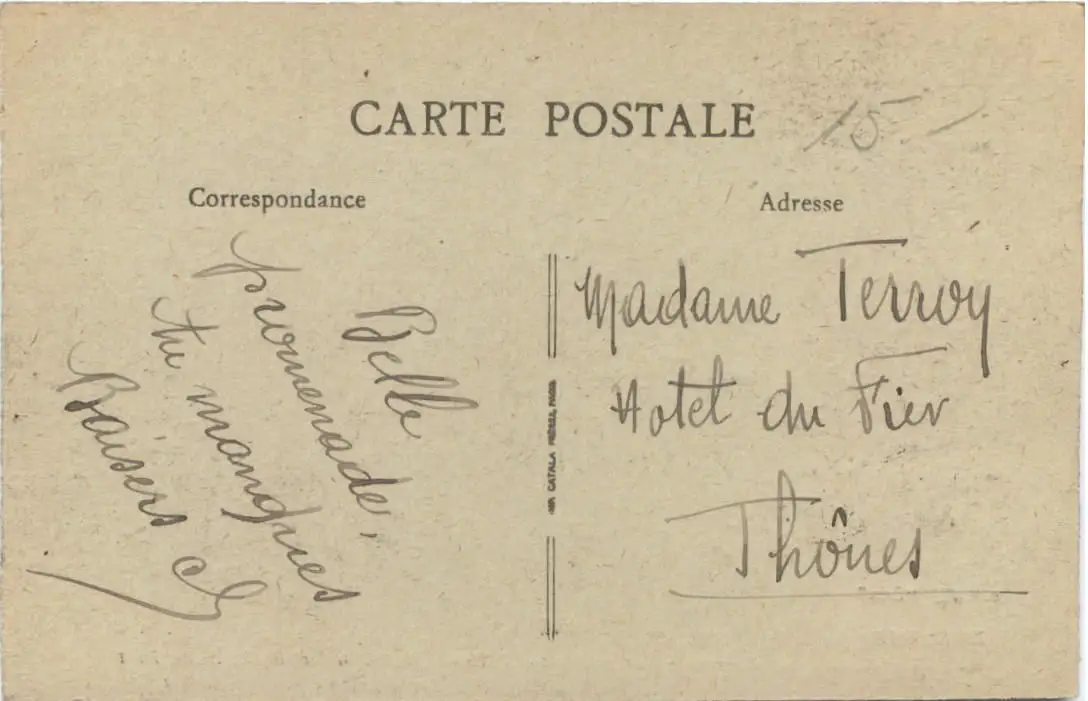 CARTE POSTALE
15
Correspondance
Adresse
Belle
promenade,
tu manques
Baisers
Madame Terroy
Hotel du Fier
Thônes
IMP. CATALA FRÈRES, PARIS